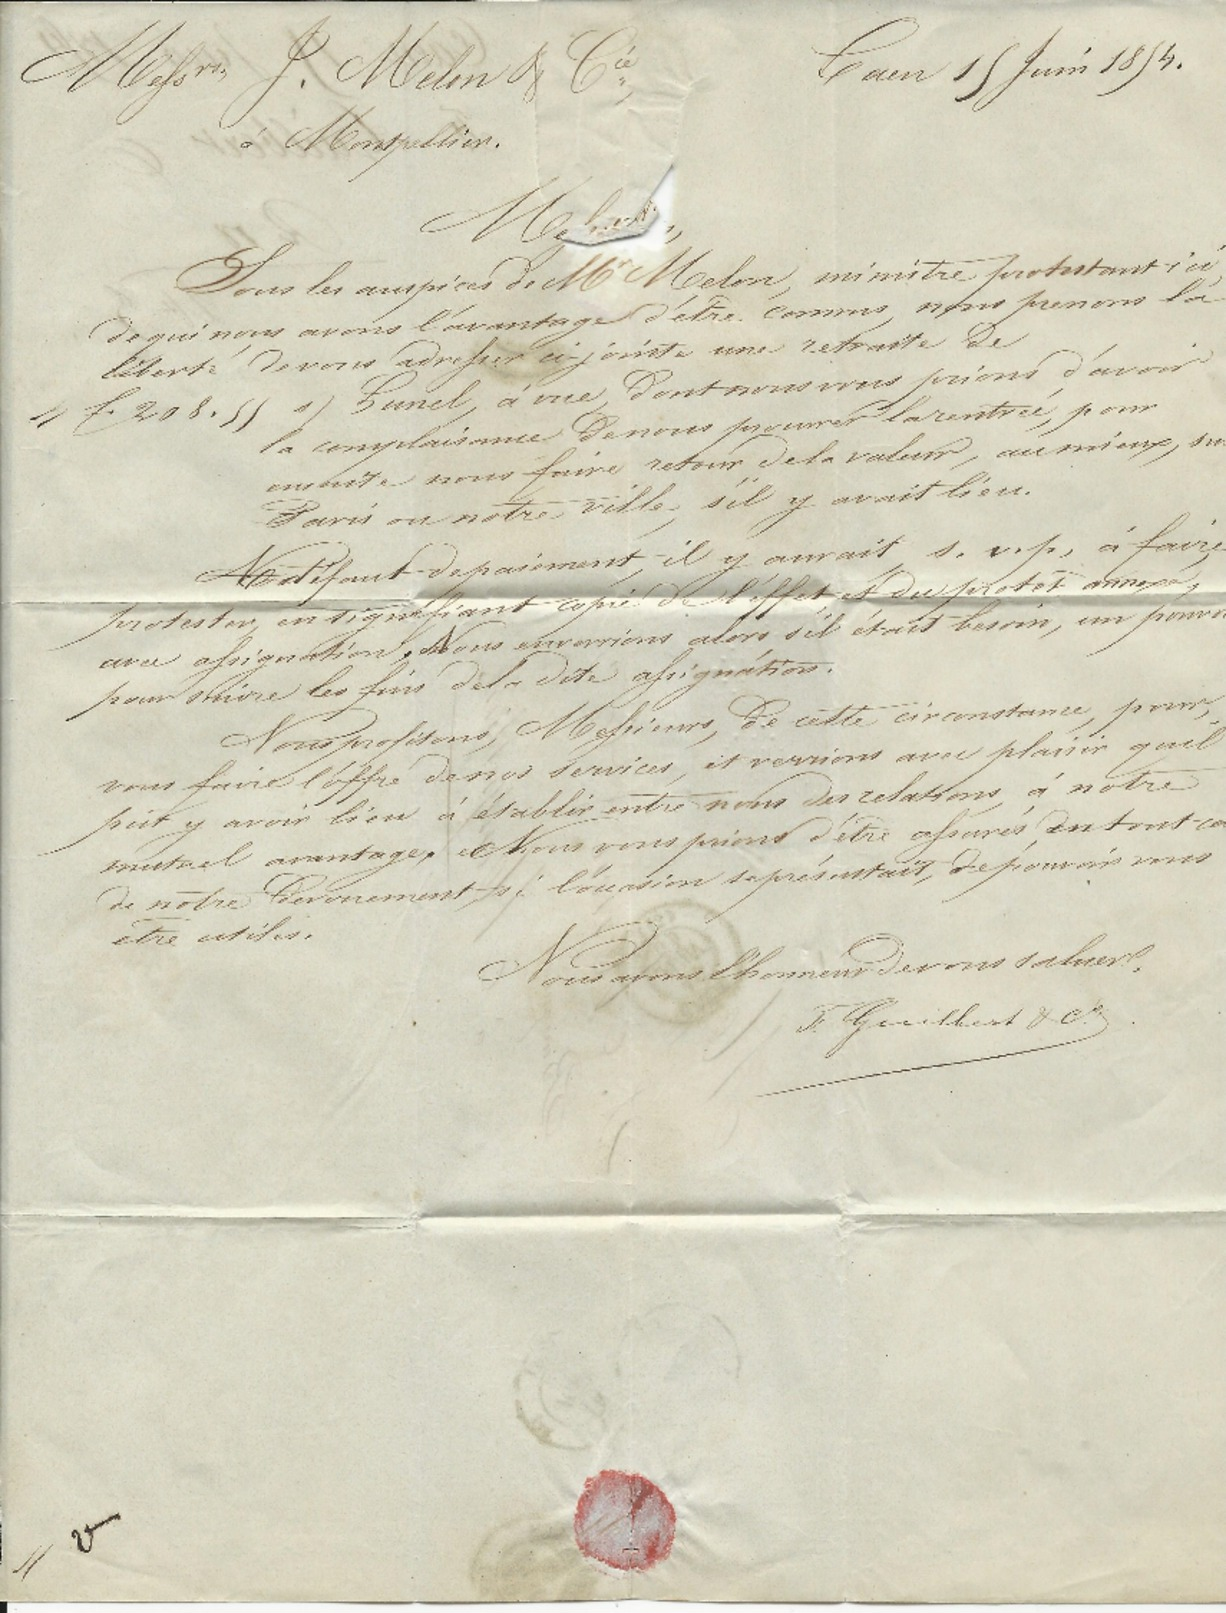 Messrs J. Melon & Cie
Caen 15 Juin 1854.
à Montpellier.
Messieurs,
Sous les auspices de Mr Melon, ministre protestant ici,
de qui nous avons l'avantage d'être connus, nous prenons la
liberté de vous adresser ci-jointe une retraite de
f. 208.55 s/ Lunel, à vue, dont nous vous prions d'avoir
la complaisance de nous procurer la rentrée, pour
ensuite nous faire retour de la valeur, au mieux, sur
Paris ou notre ville, s'il y avait lieu.
A défaut de paiement, il y aurait, s. v. p., à faire
protester, en signifiant copie de l'effet et du protêt annexé,
avec assignation. Nous enverrions alors s'il était besoin, un pouvoir
pour suivre les fins de la dite assignation.
Nous profitons, Messieurs, de cette circonstance, pour
vous faire l'offre de nos services, et verrions avec plaisir qu'il
put y avoir lieu à établir entre nous des relations, à notre
mutuel avantage. Nous vous prions d'être assurés en tout cas
de notre dévouement, si l'occasion se présentait, de pouvoir vous
être utiles.
Nous avons l'honneur de vous saluer.
F. Guilbert & Cie